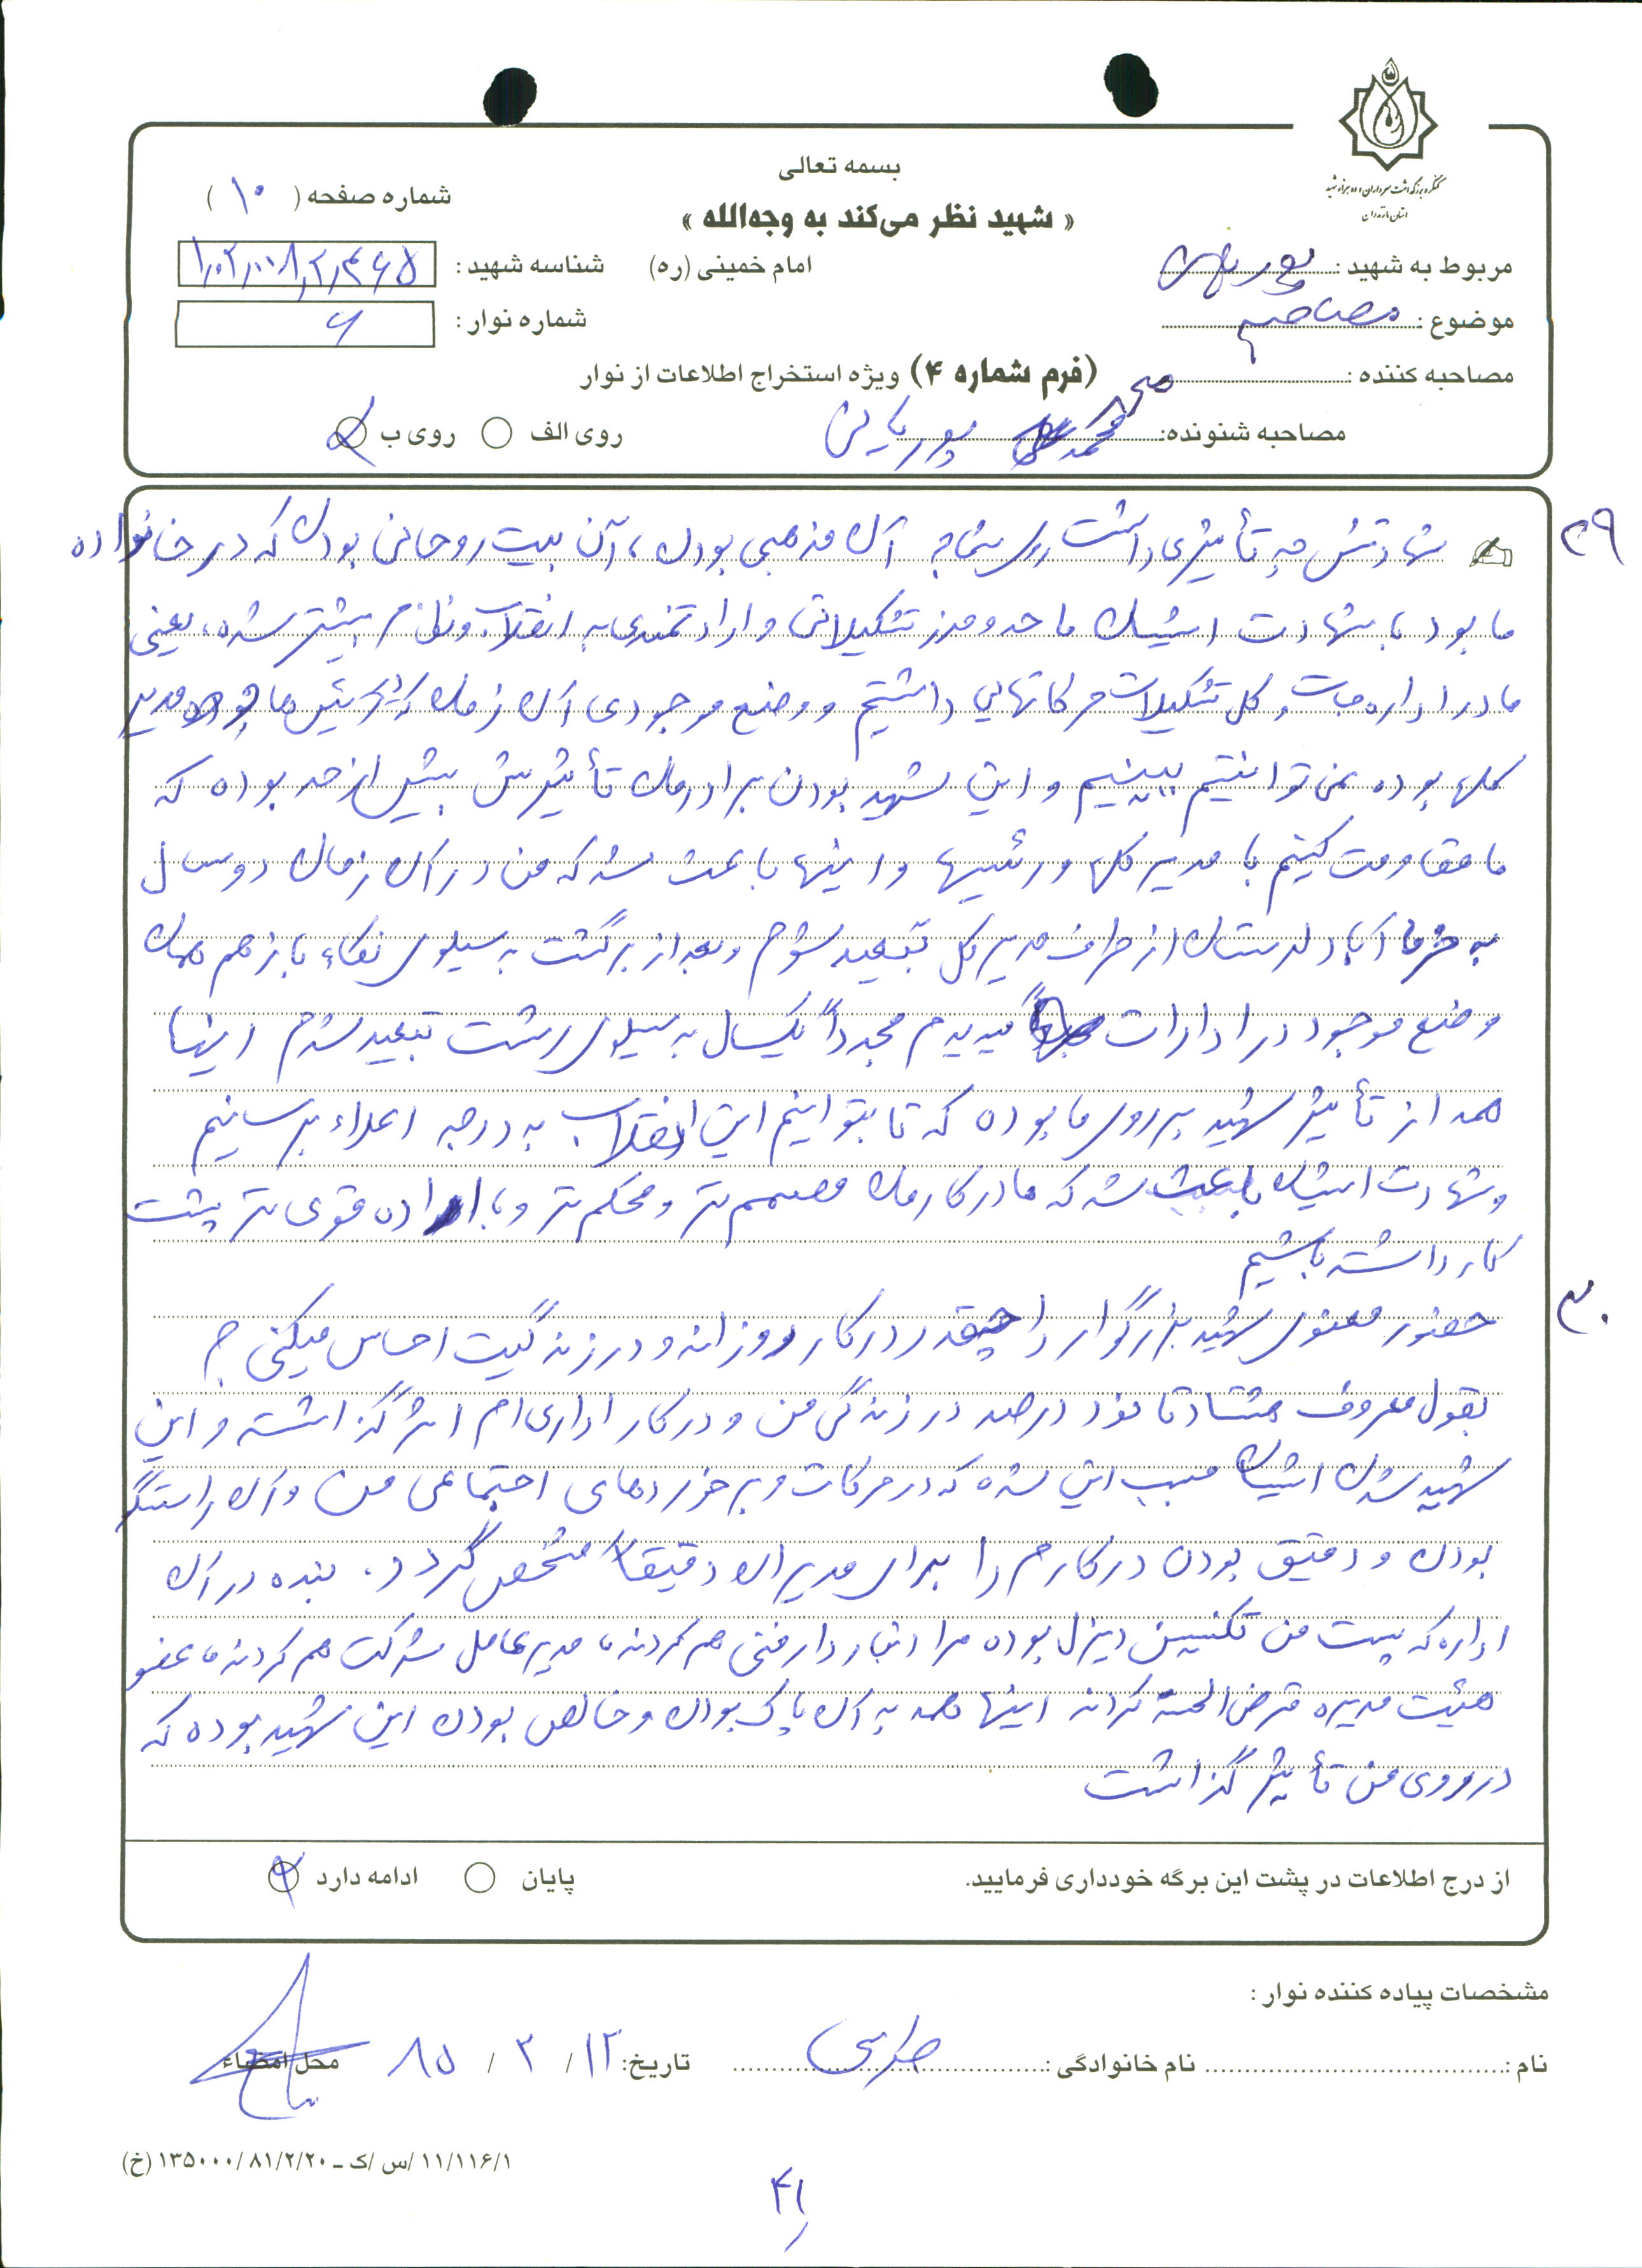 کنگره بزرگداشت سرداران و ده هزار شهید
استان مازندران
بسمه تعالی
« شهید نظر می‌کند به وجه‌الله »
شماره صفحه ( ۱۰ )
مربوط به شهید :
امام خمینی (ره)
شناسه شهید :
موضوع : مصاحبه
شماره نوار : ۶
مصاحبه کننده :
(فرم شماره ۴) ویژه استخراج اطلاعات از نوار
مصاحبه شنونده: محمد
روی الف روی ب
۲۹ شهادتش چه تأثیری داشت روی شما؟ آن مذهبی بودن، آن بیت روحانی بودن که در خانواده
ما بود با شهادت ایشان ما حد و مرز تشکیلاتی و ارادتمندی به انقلاب و نظام بیشتر شده، یعنی
ما در اداره جات و کل تشکیلات حرکاتهایی داشتیم و وضع موجودی آن زمان که رئیس ما مدیر
کلها بوده نمی توانستیم ببینیم و این شهید بودن برادرمان تأثیرش بیش از حد بوده که
ما مقاومت کنیم با مدیر کلها و رئیسها و اینها باعث شد که من در آن زمان دو سال
به خرم آباد لرستان از طرف مدیر کل تبعید شوم و بعد از برگشت به سیلوی نکاء باز هم همان
وضع موجود در ادارات میدیدم مجدداً یکسال به سیلوی رشت تبعید شدم اینها
همه از تأثیر شهید بر روی ما بوده که تا بتوانیم این انقلاب به درجه اعلاء برسانیم
و شهادت ایشان باعث شد که ما در کارمان مصمم تر و محکم تر و با اراده قوی تر پشت
کار داشته باشیم
۳۰ حضور معنوی شهید بزرگوار را چقدر در کار روزانه و در زندگیت احساس میکنی؟
بقول معروف هشتاد تا نود درصد در زندگی من و در کار اداری ام اثر گذاشته و این
شهید شدن ایشان سبب این شده که در حرکات و برخوردهای اجتماعی من و آن راستگو
بودن و دقیق بودن در کارم را برای مدیران دقیقاً مشخص گردد. بنده در آن
اداره که پست من تکنسین دیزل بوده مرا انبار دار فنی هم کردند، مدیر عامل شرکت هم کردند، عضو
هیئت مدیره قرض الحسنه کردند اینها همه به آن پاک بودن و خالص بودن این شهید بوده که
در روی من تأثیر گذاشت
از درج اطلاعات در پشت این برگه خودداری فرمایید.
ادامه دارد پایان
مشخصات پیاده کننده نوار :
نام : نام خانوادگی : تاریخ: ۱۲ / ۳ / ۸۵ محل امضاء
۱۱/۱۱۶/۱ /س /ک ــ ۸۱/۲/۲۰ /۱۳۵۰۰۰ (خ)
۴۱